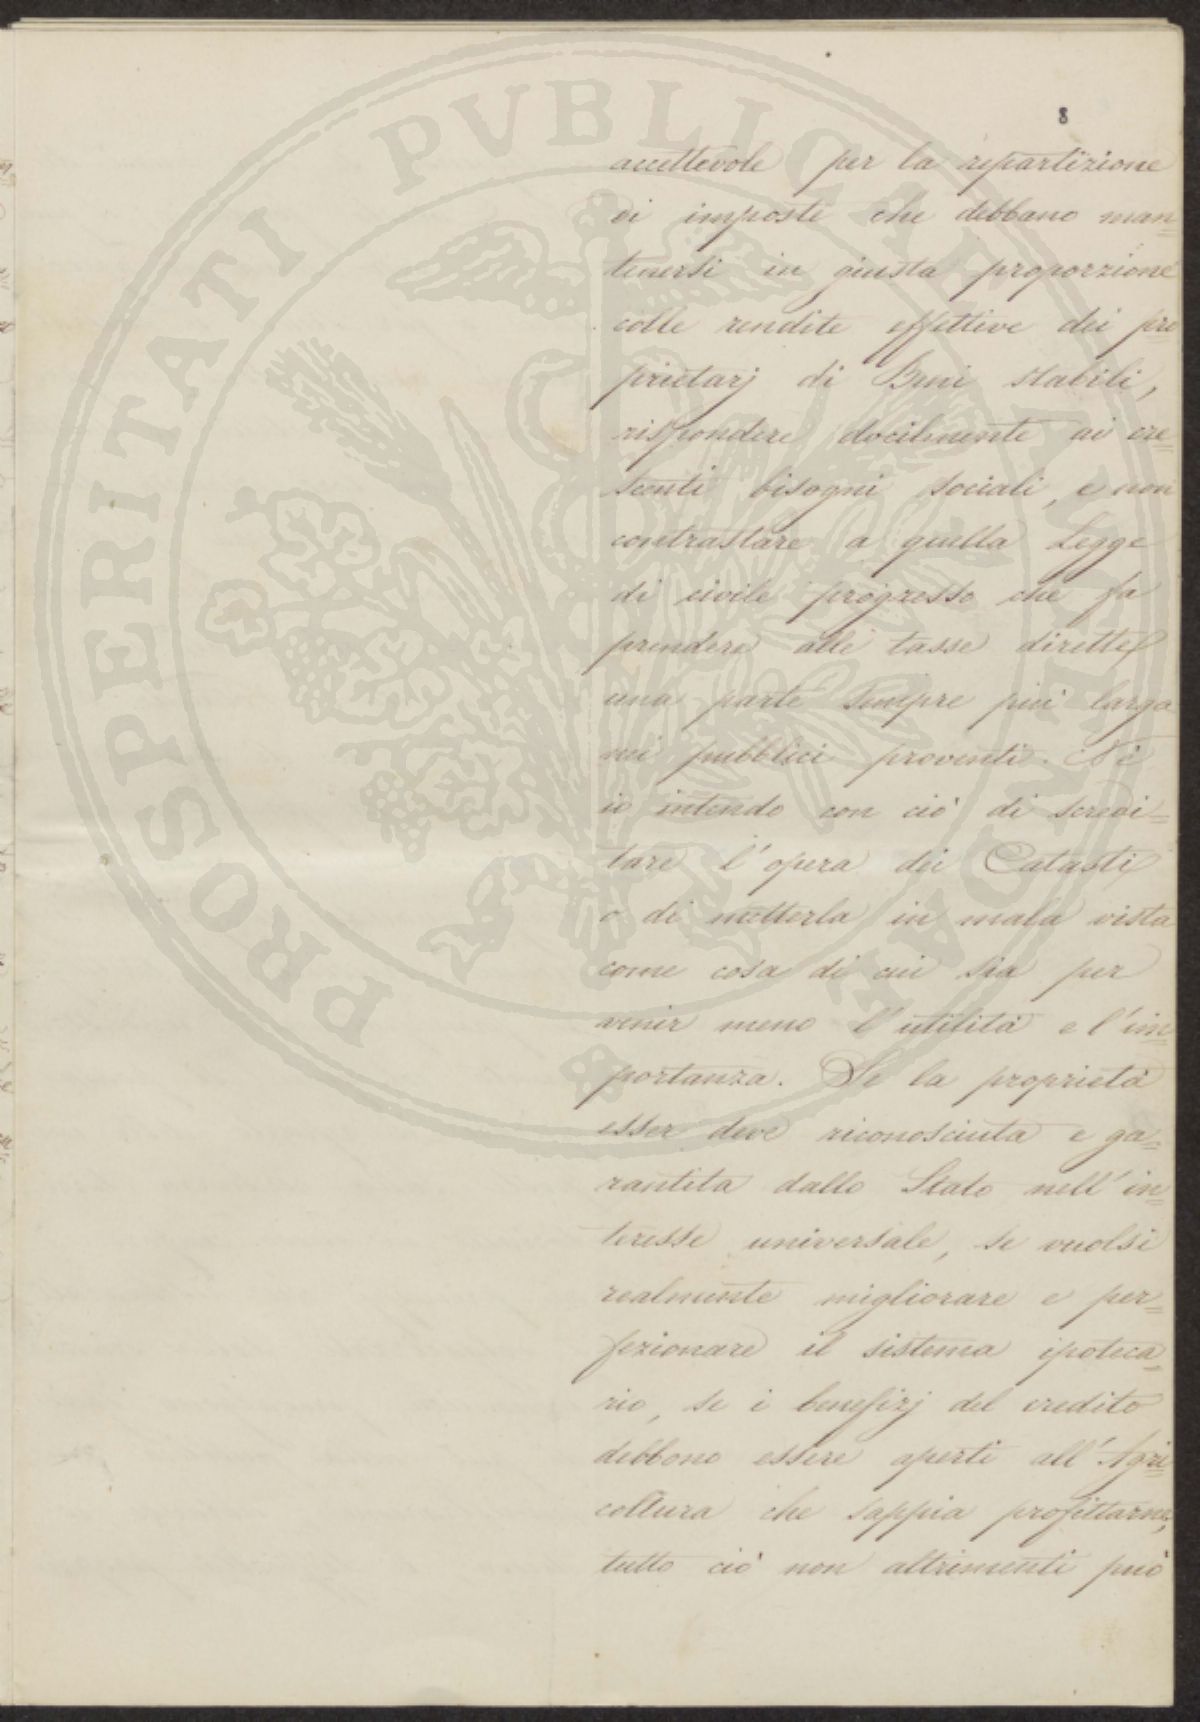 8
accettevole per la repartizione
di imposte che debbano man=
tenersi in giusta proporzione
colle rendite effettive dei pro=
prietarj di Beni stabili,
rispondere docilmente ai cre=
scenti bisogni sociali, e non
contrastare a quella Legge
di civile progresso che fa
prendere alle tasse dirette
una parte sempre più larga
nei pubblici proventi. Nè
io intendo con ciò di scredi=
tare l'opera dei Catasti
o di metterla in mala vista
come cosa di cui sia per
venir meno l'utilità e l'im=
portanza. Se la proprietà
esser deve riconosciuta e ga=
rantita dallo Stato nell'in=
teresse universale, se vuolsi
realmente migliorare e per=
fezionare il sistema ipoteca=
rio, se i benefizj del credito
debbono essere aperti all'Agri=
coltura che sappia profittarne,
tutto ciò non altrimenti può
PROSPERITATI PVBLICAE AVGENDAE